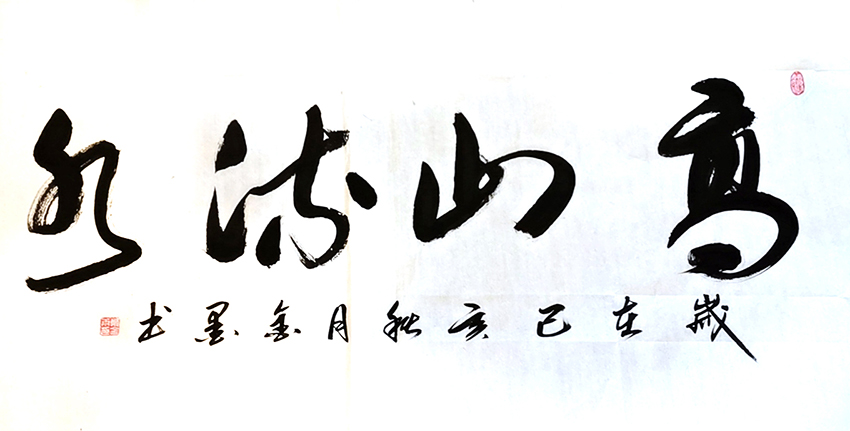 高山流水
岁在己亥秋月金墨书